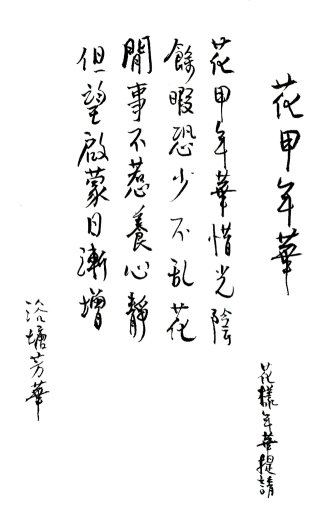 花甲年華
花甲年華惜光陰
餘暇恐少不乱花
閒事不惹養心靜
但望啟蒙日漸增
花樣年華提請
浴塘芳華